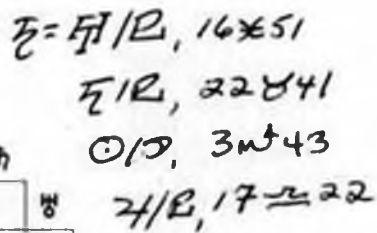 ♄=♅/♇, 16♓51
♄/♇, 22♉41
☉/☽, 3♏43
♃/♇, 17♎22
♄
♅